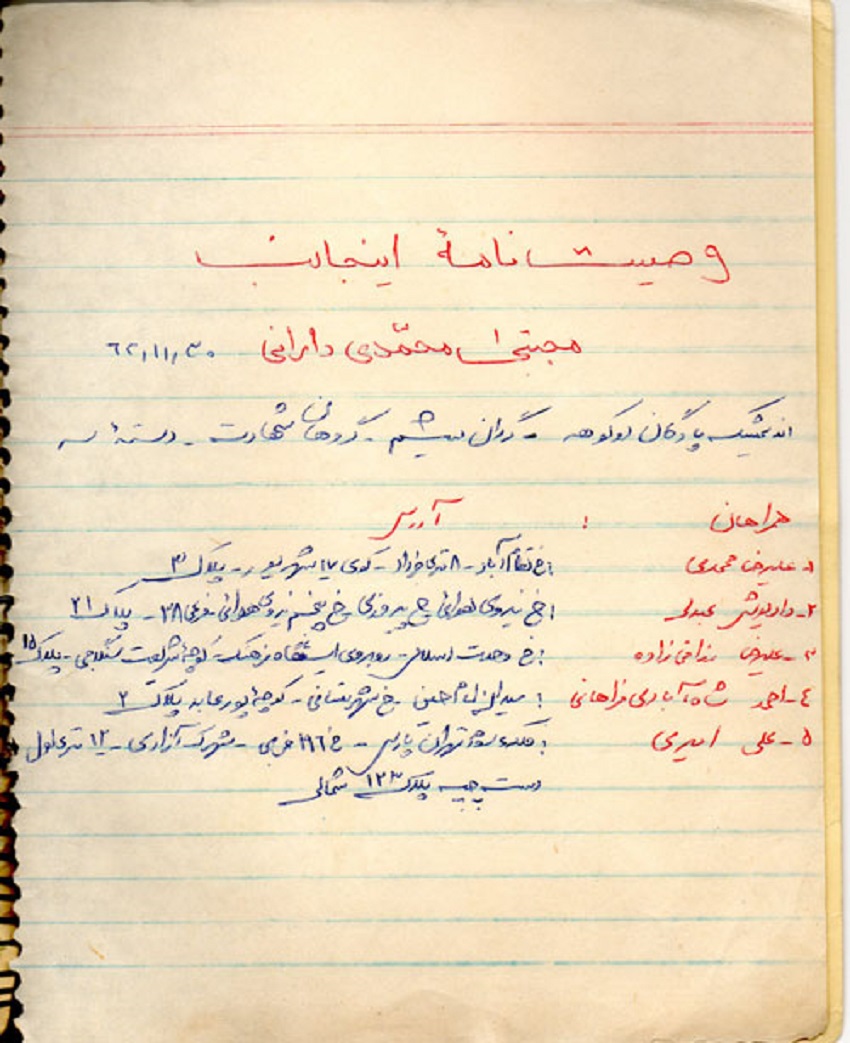 وصیت نامهٔ اینجانب
مجتبی محمّدی دارانی ۶۲٫۱۱٫۳۰
اندیمشک پادگان کوکوهه - گردان میثم - گروهان شهادت - دستهٔ سه
همراهان : آدرس
۱- علیرضا محمدی :خ نظام آباد - ۸ متری فرزاد - کوی ۱۷ شهریور - پلاک ۳
۲- داریوش عبدلی :خ نیروی هوائی خ پیروزی خ پنجم نیروی هوائی فرعی ۳۸ - پلاک ۲۱
۳- علیرضا رزاقی زاده :خ وحدت اسلامی - روبروی ایستگاه فرهنگ - کوچهٔ شریعت سنگلجی - پلاک ۱۵
۴- احمد شاه آبادی فراهانی : میدان امام حسین - خ شهرستانی - کوچهٔ پور عابد پلاک ۲
۵- علی امیری : فلکه سوم تهران پارس - خ ۱۹۶ غربی - شهرک آزادی - ۱۲ متری اول
دست چپ پلاک ۱۲۳ شمالی